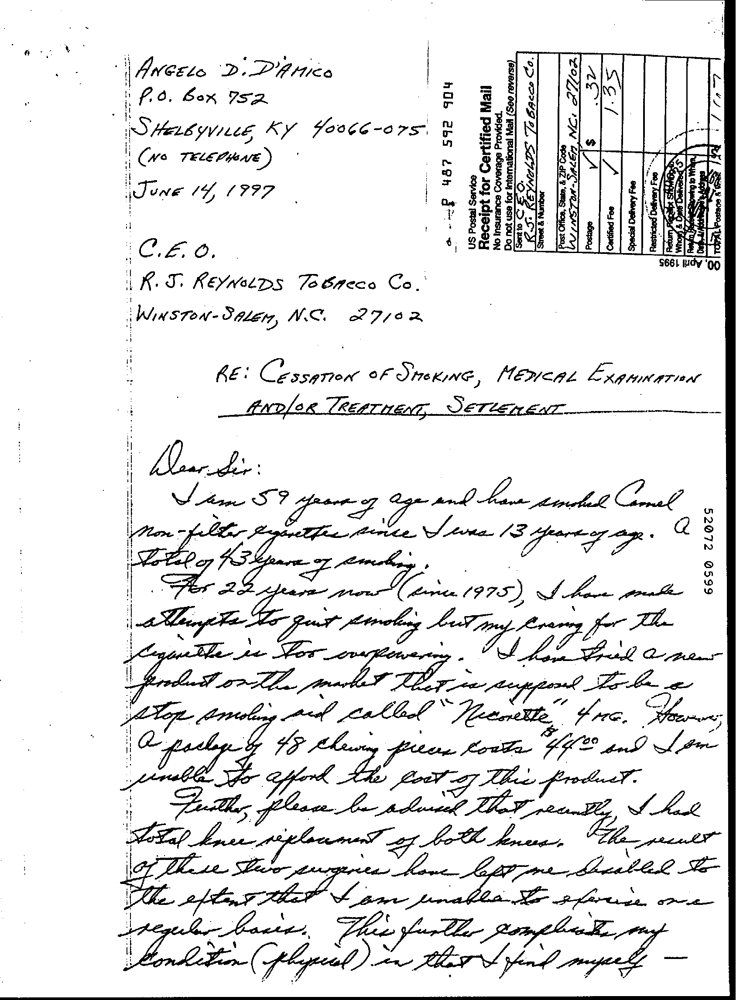 ANGELO D. D'AMICO
P.O. BOX 752
SHELBYVILLE, KY 40066-075
(NO TELEPHONE)
JUNE 14, 1997
C.E.O.
R.J. REYNOLDS TOBACCO CO.
WINSTON-SALEM, N.C. 27102
P 487 592 904
US Postal Service
Receipt for Certified Mail
No Insurance Coverage Provided.
Do not use for International Mail (See reverse)
Sent to C.E.O.
R.J. REYNOLDS TOBACCO CO.
Street & Number
Post Office, State, & ZIP Code
WINSTON-SALEM, NC. 27102
Postage $ .32
Certified Fee 1.35
Special Delivery Fee
Restricted Delivery Fee
TOTAL Postage & Fees
April 1995
RE: CESSATION OF SMOKING, MEDICAL EXAMINATION
AND/OR TREATMENT, SETLEMENT
Dear Sir:
I am 59 years of age and have smoked Camel
non-filter cigarettes since I was 13 years of age. A
total of 43 years of smoking.
For 22 years now (since 1975), I have made
attempts to quit smoking but my craving for the
cigarette is too overpowering. I have tried a new
product on the market that is supposed to be a
stop smoking aid called "Nicorette" 4 MG. However,
a package of 48 chewing pieces costs $44.00 and I am
unable to afford the cost of this product.
Further, please be advised that recently, I had
total knee replacement of both knees. The result
of these two surgeries have left me disabled to
the extent that I am unable to exercise on a
regular basis. This further complicates my
condition (physical) in that I find myself —
52072 0599